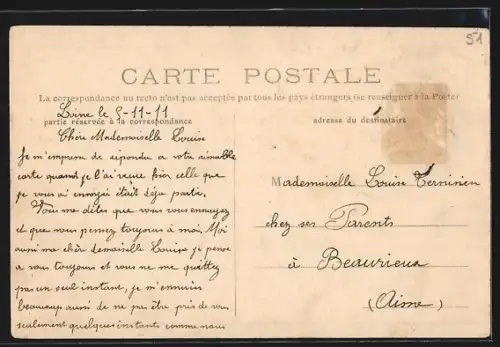 51
CARTE POSTALE
La correspondance au recto n'est pas acceptée par tous les pays étrangers (se renseigner à la Poste)
le 5-11-11
partie réservée à la correspondance
adresse du destinataire
Chère Mademoiselle Louise
Je m'empresse de répondre a votre aimable
carte quand je l'ai reçue hier celle que
je vous ai envoyé était déja partie.
Vous me dites que vous vous ennuyez
et que vous pensez toujours à moi. Moi
aussi ma chère demoiselle Louise je pense
a vous toujours et vous ne me quittez
pas un seul instant, je m'ennuie
beaucoup aussi de ne pas être près de vous
seulement quelques instants comme nous
Mademoiselle Louise
chez ses Parents
à Beaurieux
(Aisne)